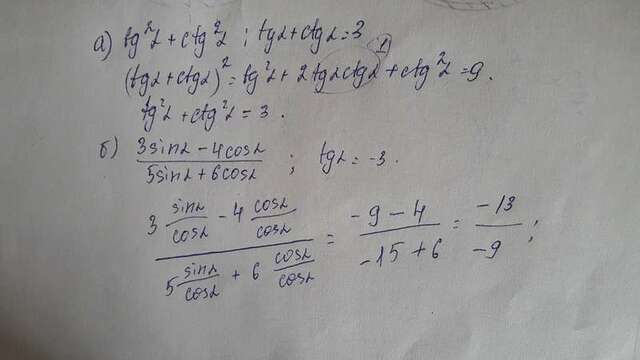 а) tg²α + ctg²α ; tgα + ctgα = 3
(tgα + ctgα)² = tg²α + 2 tgα ctgα + ctg²α = 9.
1
tg²α + ctg²α = 3 .
б) (3sinα - 4cosα)/(5sinα + 6cosα) ; tgα = -3.
(3 sinα/cosα - 4 cosα/cosα)/(5 sinα/cosα + 6 cosα/cosα) = (-9 - 4)/(-15 + 6) = -13/-9 ;